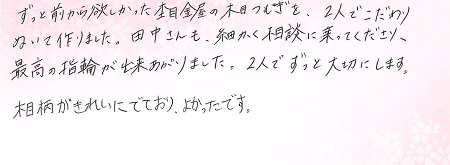 ずっと前から欲しかった杢目金屋の木目つむぎを、2人でこだわり
ぬいて作りました。田中さんも、細かく相談に乗ってくださり、
最高の指輪が出来あがりました。2人でずっと大切にします。
相柄がきれいにでており、よかったです。